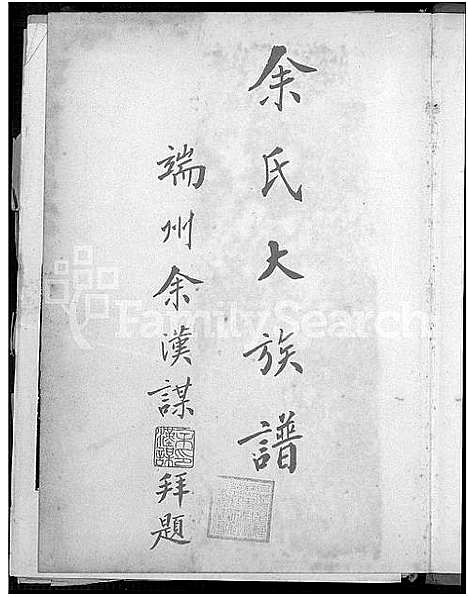 余氏大族譜
端州余漢謀
拜題
FamilySearch